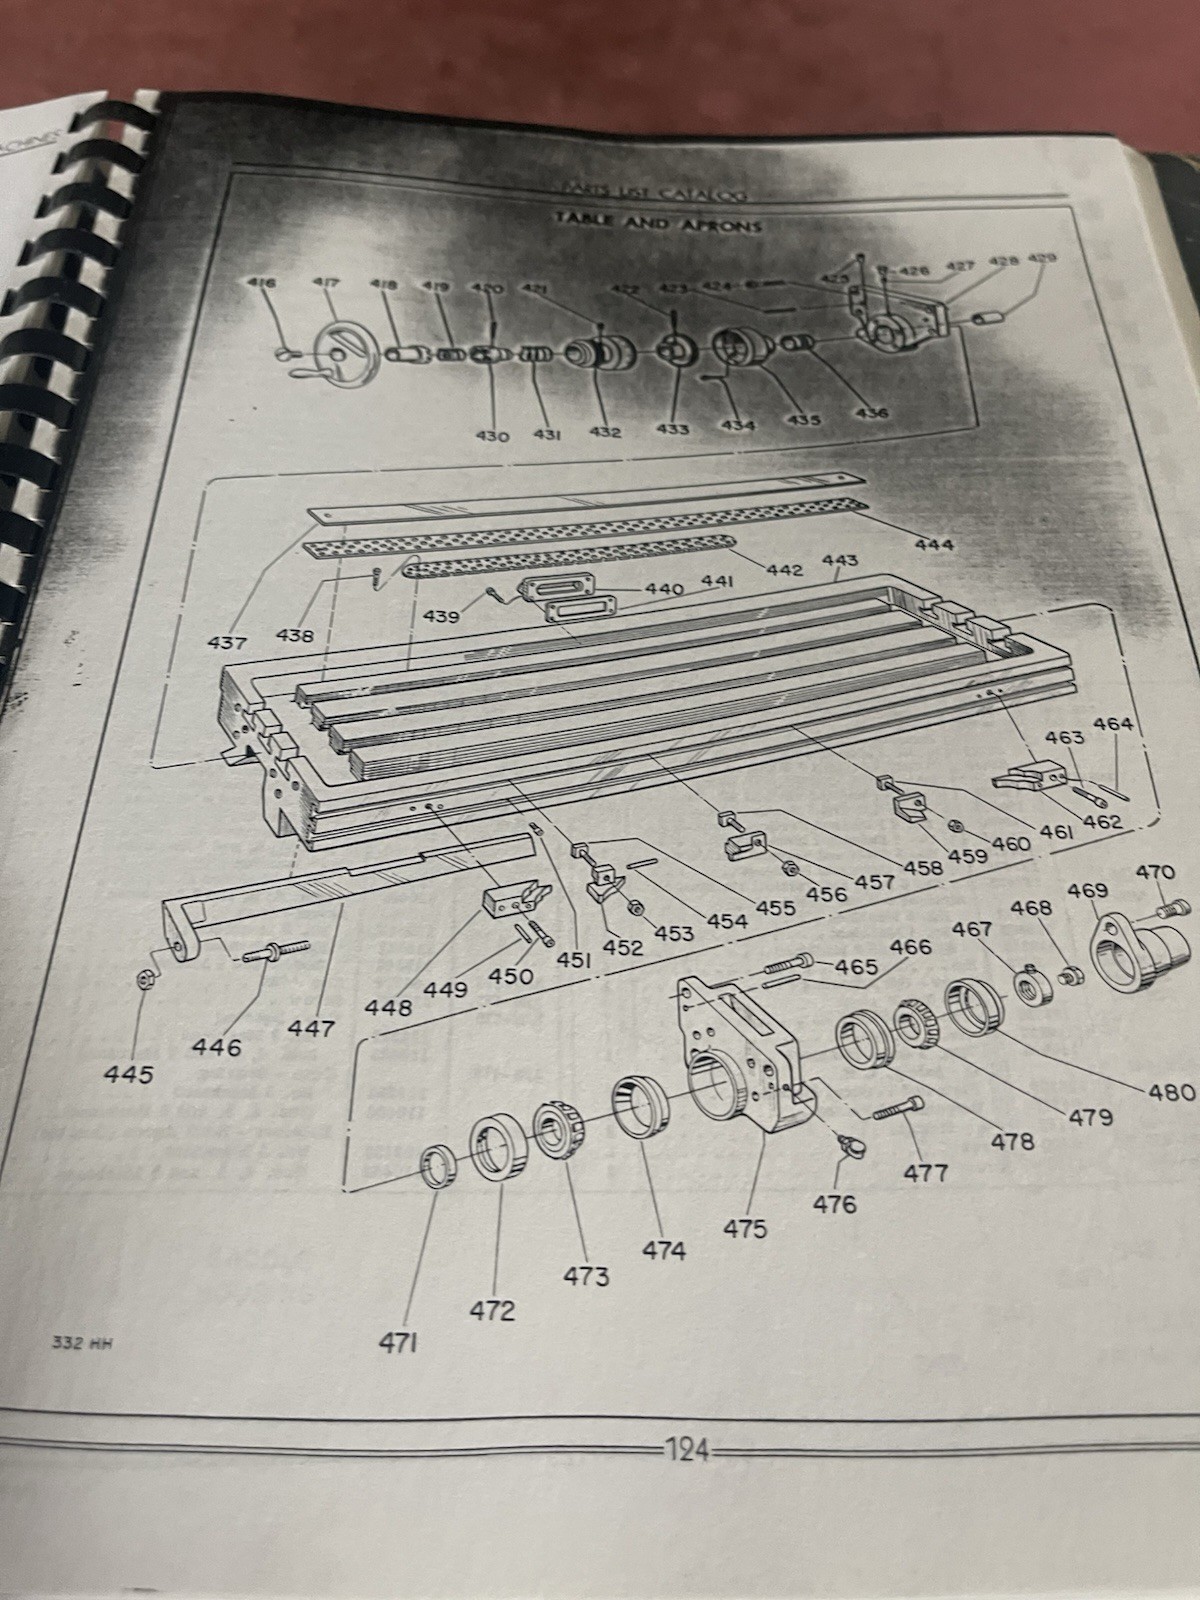 PARTS LIST CATALOG
TABLE AND APRONS
416 417 418 419 420 421 422 423 424 425 426 427 428 429
430 431 432 433 434 435 436
437 438 439 440 441 442 443 444
463 464
445 446 447 448 449 450 451 452 453 454 455 456 457 458 459 460 461 462
465 466 467 468 469 470
471 472 473 474 475 476 477 478 479 480
332 HH
124